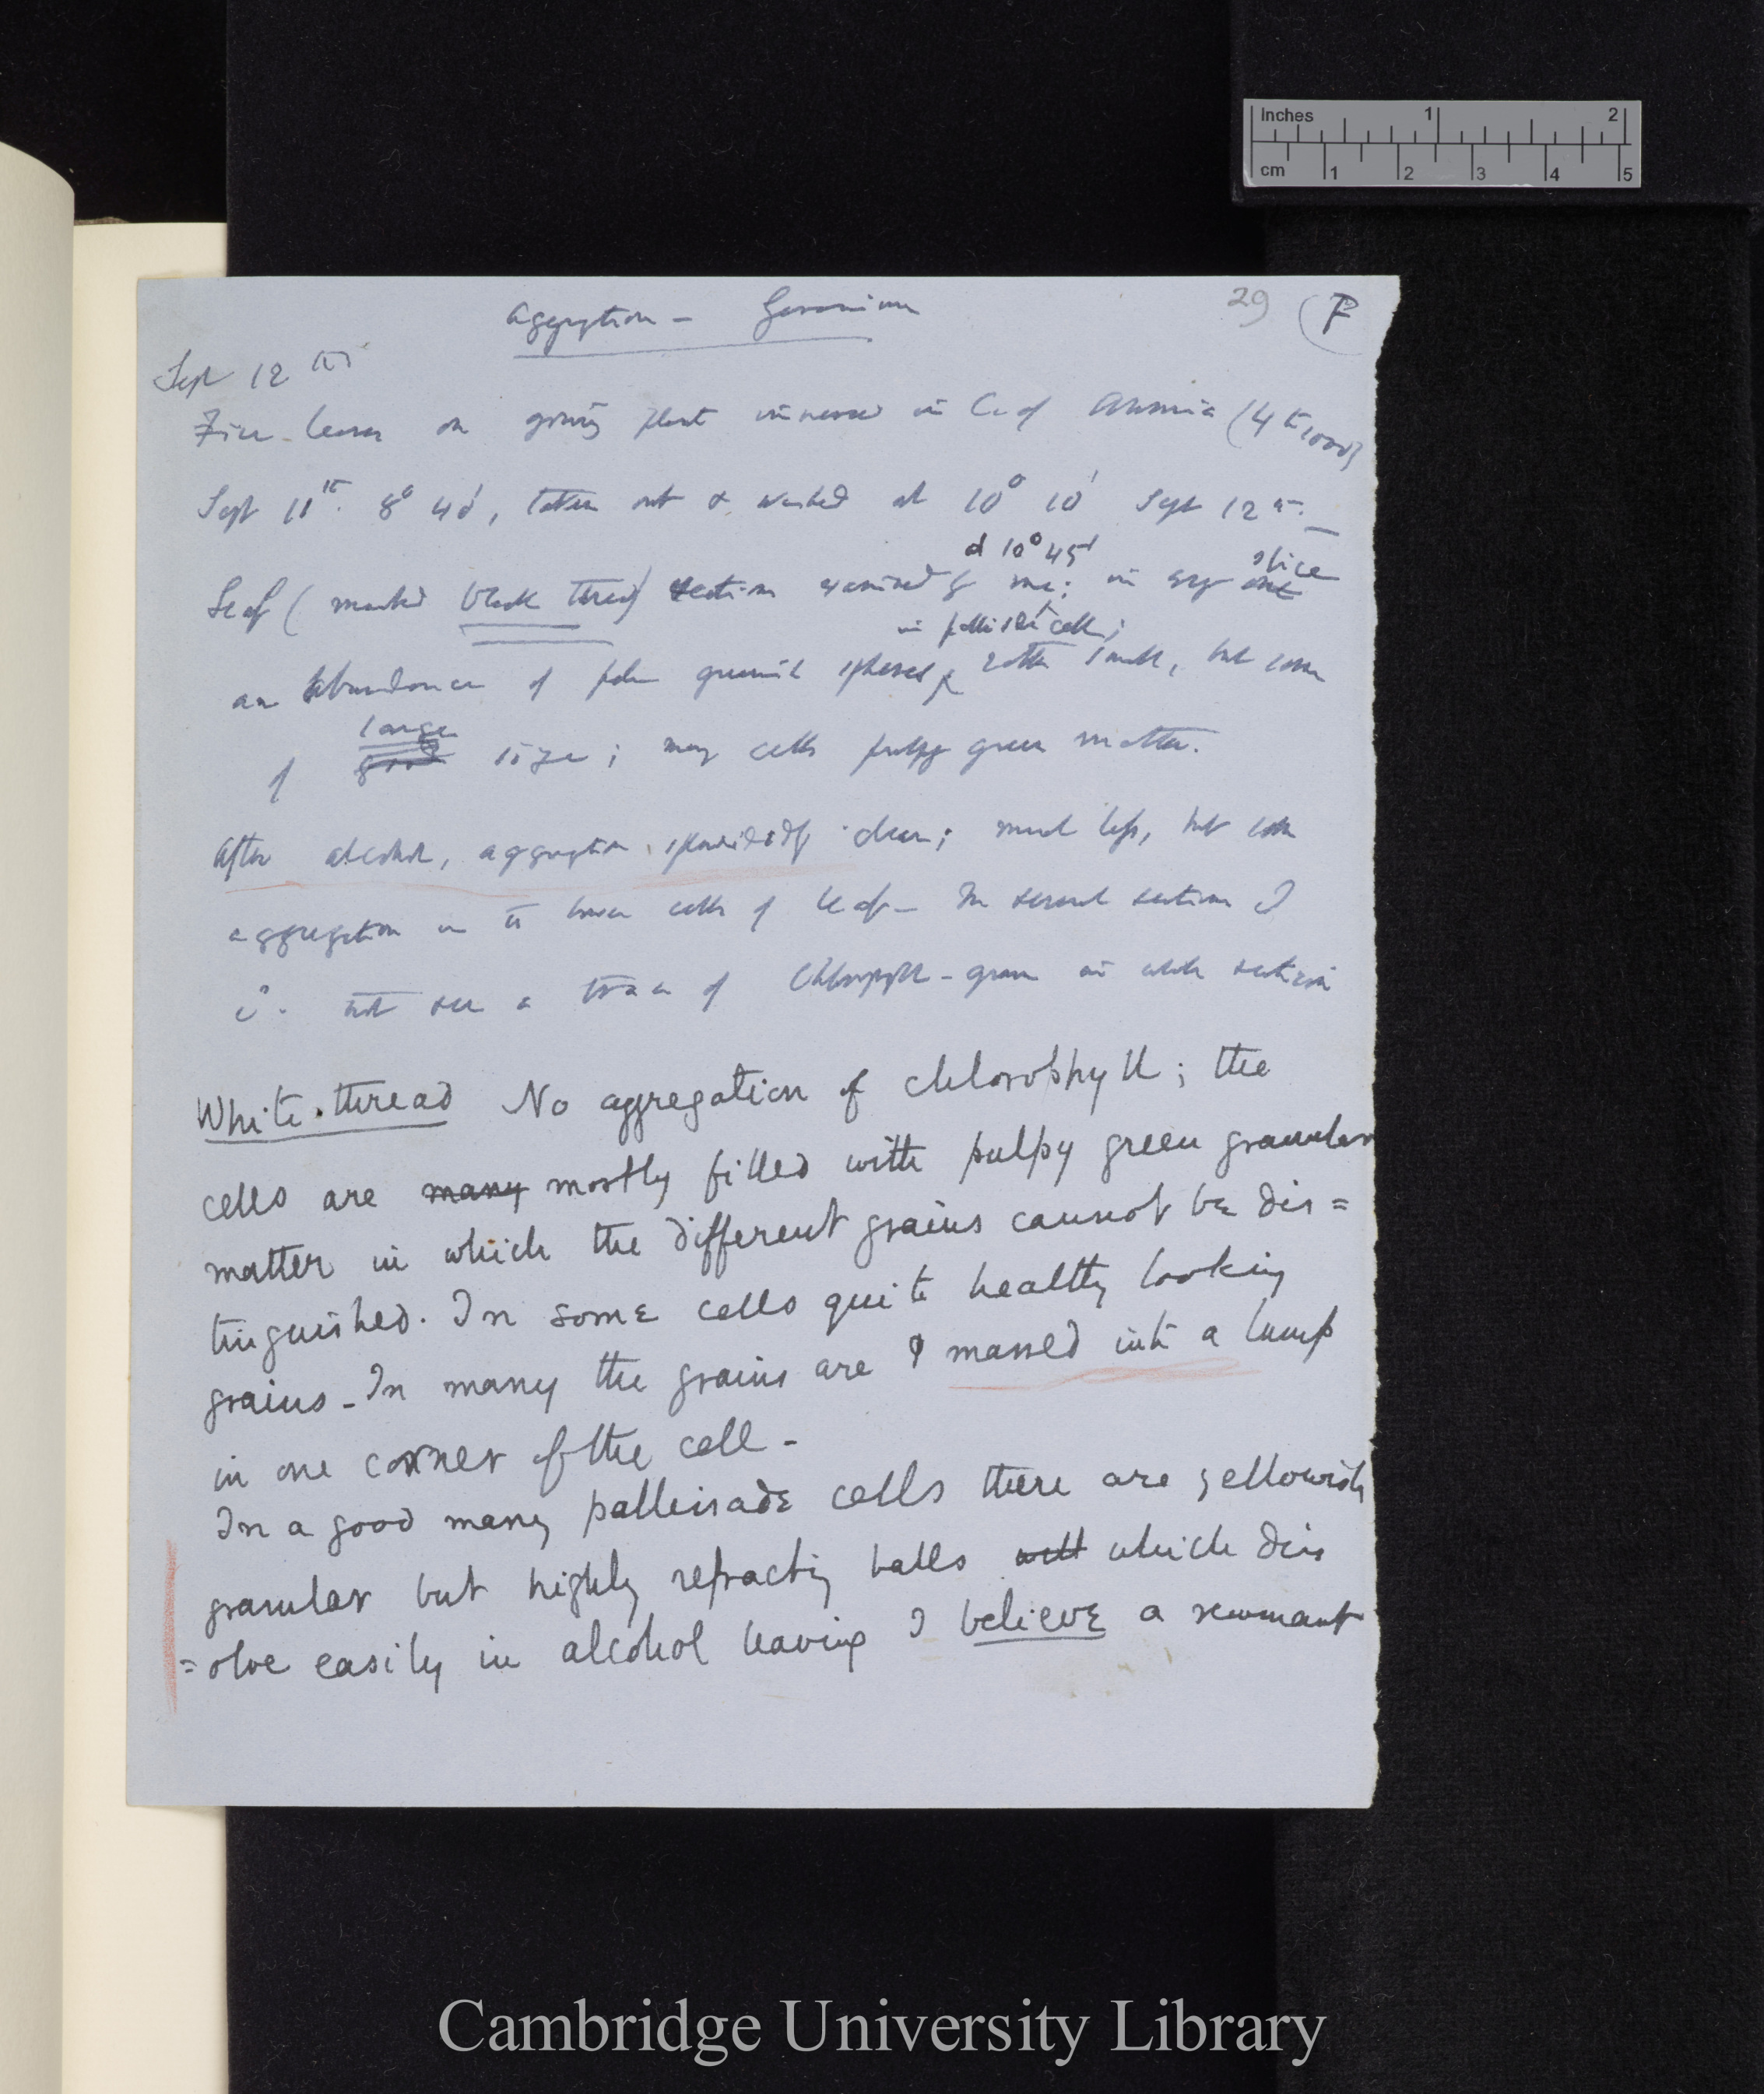 Inches 1 2
cm 1 2 3 4 5
29 F
Aggregation — Geranium
Sept 12th
Five leaves on growing plant immersed in C. of Ammonia (4 to 1000)
Sept 11th 8° 40', taken out & washed at 10° 10' Sept 12th. —
at 10° 45' slice
Leaf (marked black thread) section examined by me; in every one
in pallisade cells;
an abundance of pale greenish spheres, rather small, but some
large
of good size; many cells pulpy green matter.
After alcohol, aggregation splendidly clear; much less, but some
aggregation in the lower cells of leaf — In several sections I
cd. not see a trace of Chlorophyll-grain in whole section
White thread No aggregation of chlorophyll; the
cells are many mostly filled with pulpy green granular
matter in which the different grains cannot be dis=
tinguished. In some cells quite healthy looking
grains — In many the grains are massed into a lump
in one corner of the cell —
In a good many palleisade cells there are yellowish
granular but highly refracting balls will which diss
=olve easily in alcohol leaving I believe a remnant
Cambridge University Library